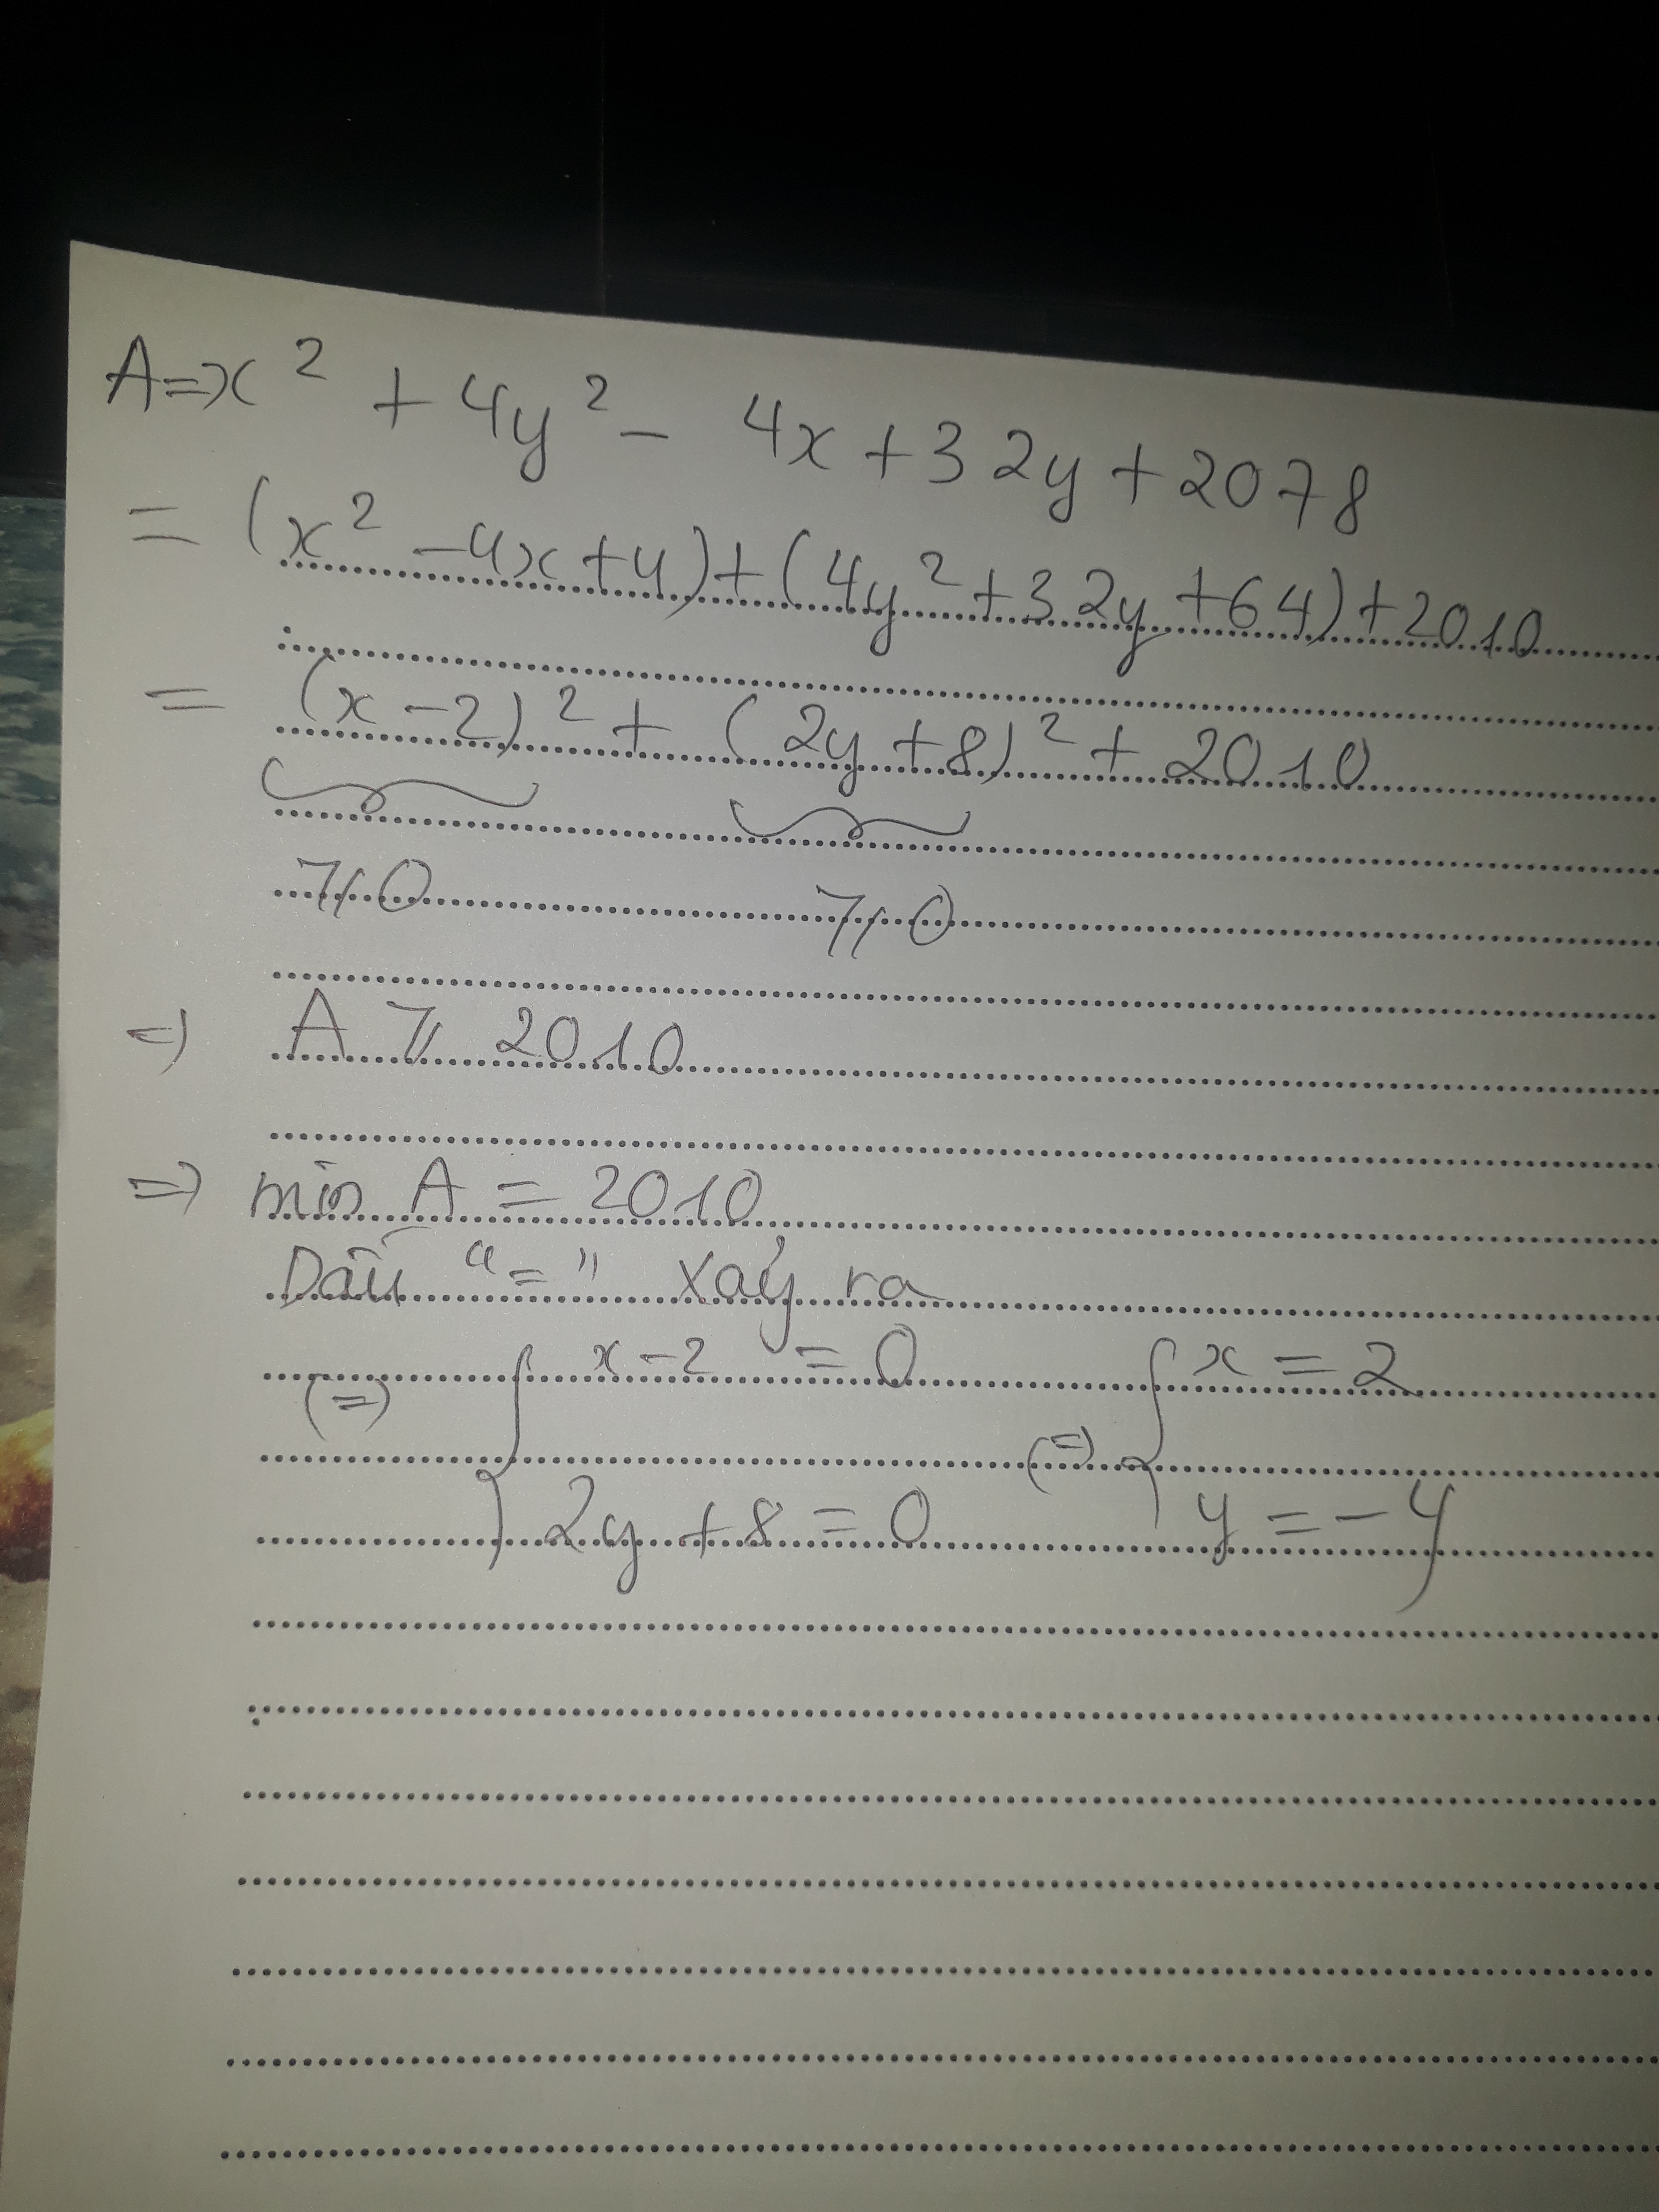 A = x² + 4y² - 4x + 32y + 2078
= (x² - 4x + 4) + (4y² + 32y + 64) + 2010
= (x - 2)² + (2y + 8)² + 2010
⩾ 0 ⩾ 0
=> A ⩾ 2010
=> min A = 2010
Dấu "=" xảy ra
(=) { x - 2 = 0 (=) { x = 2
2y + 8 = 0 y = -4